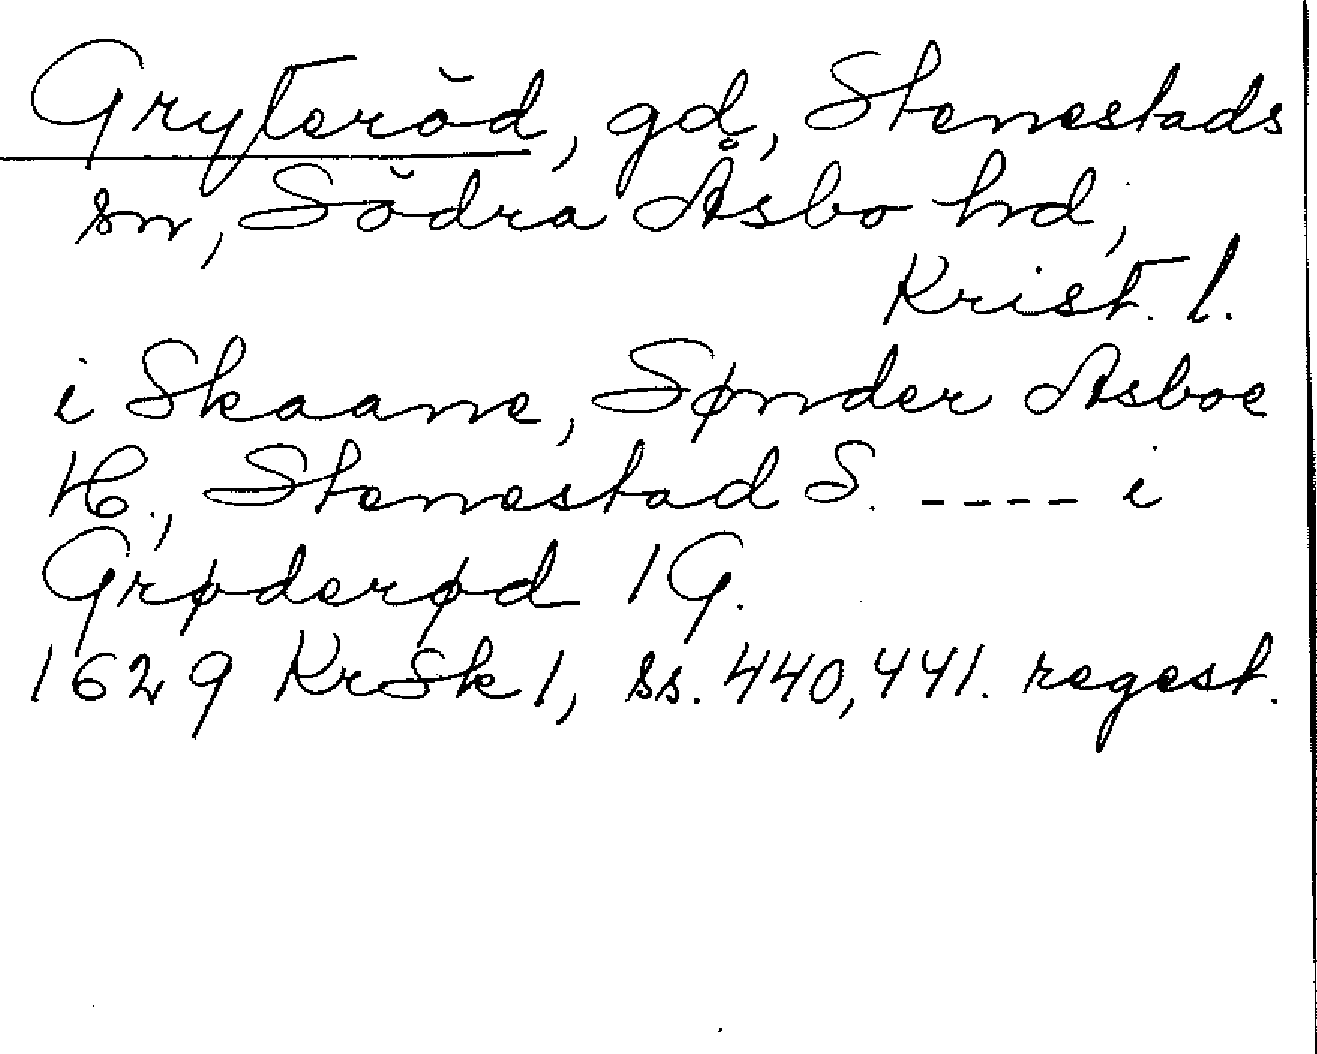 Gryteröd, gd, Stenestads
sn, Södra Åsbo hd,
Krist. l.
i Skaane, Sønder Asboe
H., Stenestad S. ---- i
Grøderød 1 G.
1629 KrSk 1, ss. 440, 441. regest.